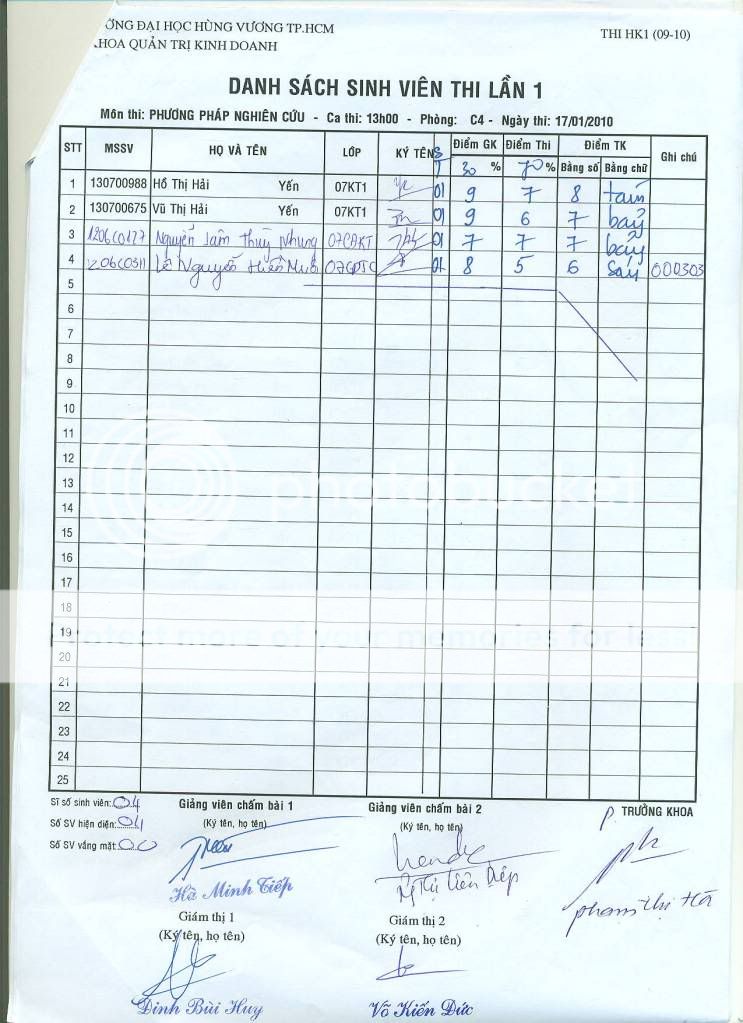 ỜNG ĐẠI HỌC HÙNG VƯƠNG TP.HCM
KHOA QUẢN TRỊ KINH DOANH
THI HK1 (09-10)
DANH SÁCH SINH VIÊN THI LẦN 1
Môn thi: PHƯƠNG PHÁP NGHIÊN CỨU - Ca thi: 13h00 - Phòng: C4 - Ngày thi: 17/01/2010
STT MSSV HỌ VÀ TÊN LỚP KÝ TÊN ST Điểm GK Điểm Thi Điểm TK Ghi chú
30 % 70 % Bằng số Bằng chữ
1 130700988 Hồ Thị Hải Yến 07KT1 01 9 7 8 tám
2 130700675 Vũ Thị Hải Yến 07KT1 01 9 6 7 bảy
3 1206C0127 Nguyễn Lâm Thuỳ Nhung 07CAKT 01 7 7 7 bảy
4 Lê Nguyễn Hiền 01 8 5 6 Sáu 000303
5
6
7
8
9
10
11
12
13
14
15
16
17
18
19
20
21
22
23
24
25
photobucket
Protect more of your memories for less!
Sĩ số sinh viên: 04
Số SV hiện diện: 04
Số SV vắng mặt: 00
Giảng viên chấm bài 1
(Ký tên, họ tên)
Hà Minh Tiếp
Giảng viên chấm bài 2
(Ký tên, họ tên)
Thị Liên Diệp
P. TRƯỞNG KHOA
phạm thị Hà
Giám thị 1
(Ký tên, họ tên)
Đinh Bùi Huy
Giám thị 2
(Ký tên, họ tên)
Võ Kiến Đức